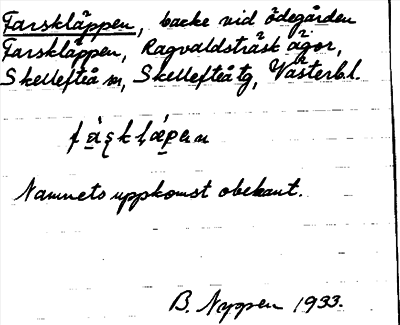 Farskläppen, backe vid ödegården
Farskläppen, Ragvaldsträsk ägor,
Skellefteå sn, Skellefteå tg, Västerb.l.
Namnets uppkomst obekant.
B. Nyppen 1933.